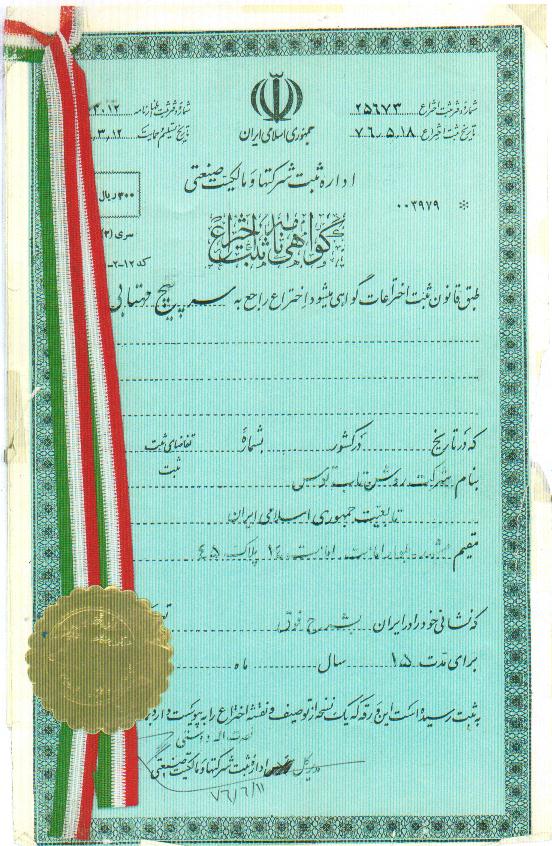 شماره ثبت اختراع ۲۵۶۷۳
تاریخ ثبت اختراع ۷۶.۵.۱۸
جمهوری اسلامی ایران
شماره ثبت اظهارنامه ۳۰۱۲
تاریخ تسلیم و حمایت ۳.۱۲
اداره ثبت شرکتها و مالکیت صنعتی
۳۰۰ ریال
* ۰۰۳۹۷۹
گواهی نامه ثبت اختراع
سری (۲)
کد ۱۲-۲-
طبق قانون ثبت اختراعات گواهی میشود اختراع راجع به سرپیچ مهتابی
که در تاریخ در کشور بشماره تقاضای ثبت
ثبت
بنام شرکت روشن تاب توس
تابعیت جمهوری اسلامی ایران
مقیم پلاک ۴۵
که نشانی خود را در ایران بشرح فوق
برای مدت ۱۵ سال ماه
به ثبت رسیده است این ورقه که یک نسخه از توصیف و نقشه اختراع را به پیوست دارد
مدیر کل اداره ثبت شرکتها و مالکیت صنعتی
۷۶/۶/۱۱